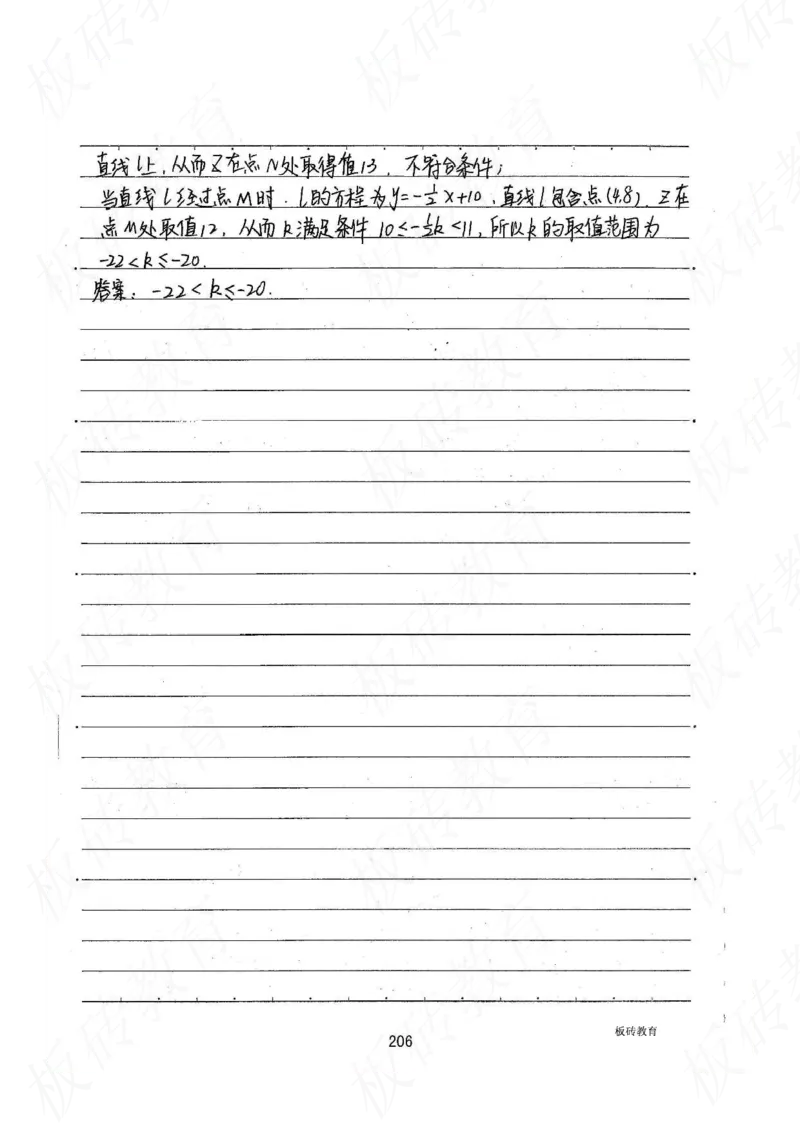 直线l上,从而Z在点N处取得值13,不符合条件;
当直线l经过点M时.l的方程为y=-½x+10,直线l包含点(4,8).Z在
点M处取值12,从而k满足条件 10≤-½k<11,所以k的取值范围为
-22<k≤-20.
答案:-22<k≤-20.
板砖教育
206